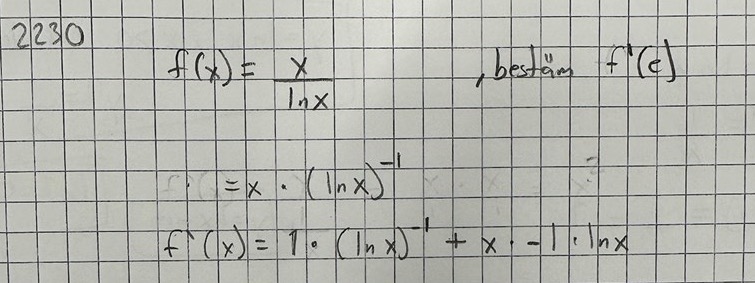 2230
f(x) = x / lnx , bestäm f'(e)
= x · (lnx)^-1
f'(x) = 1 · (lnx)^-1 + x · -1 · lnx